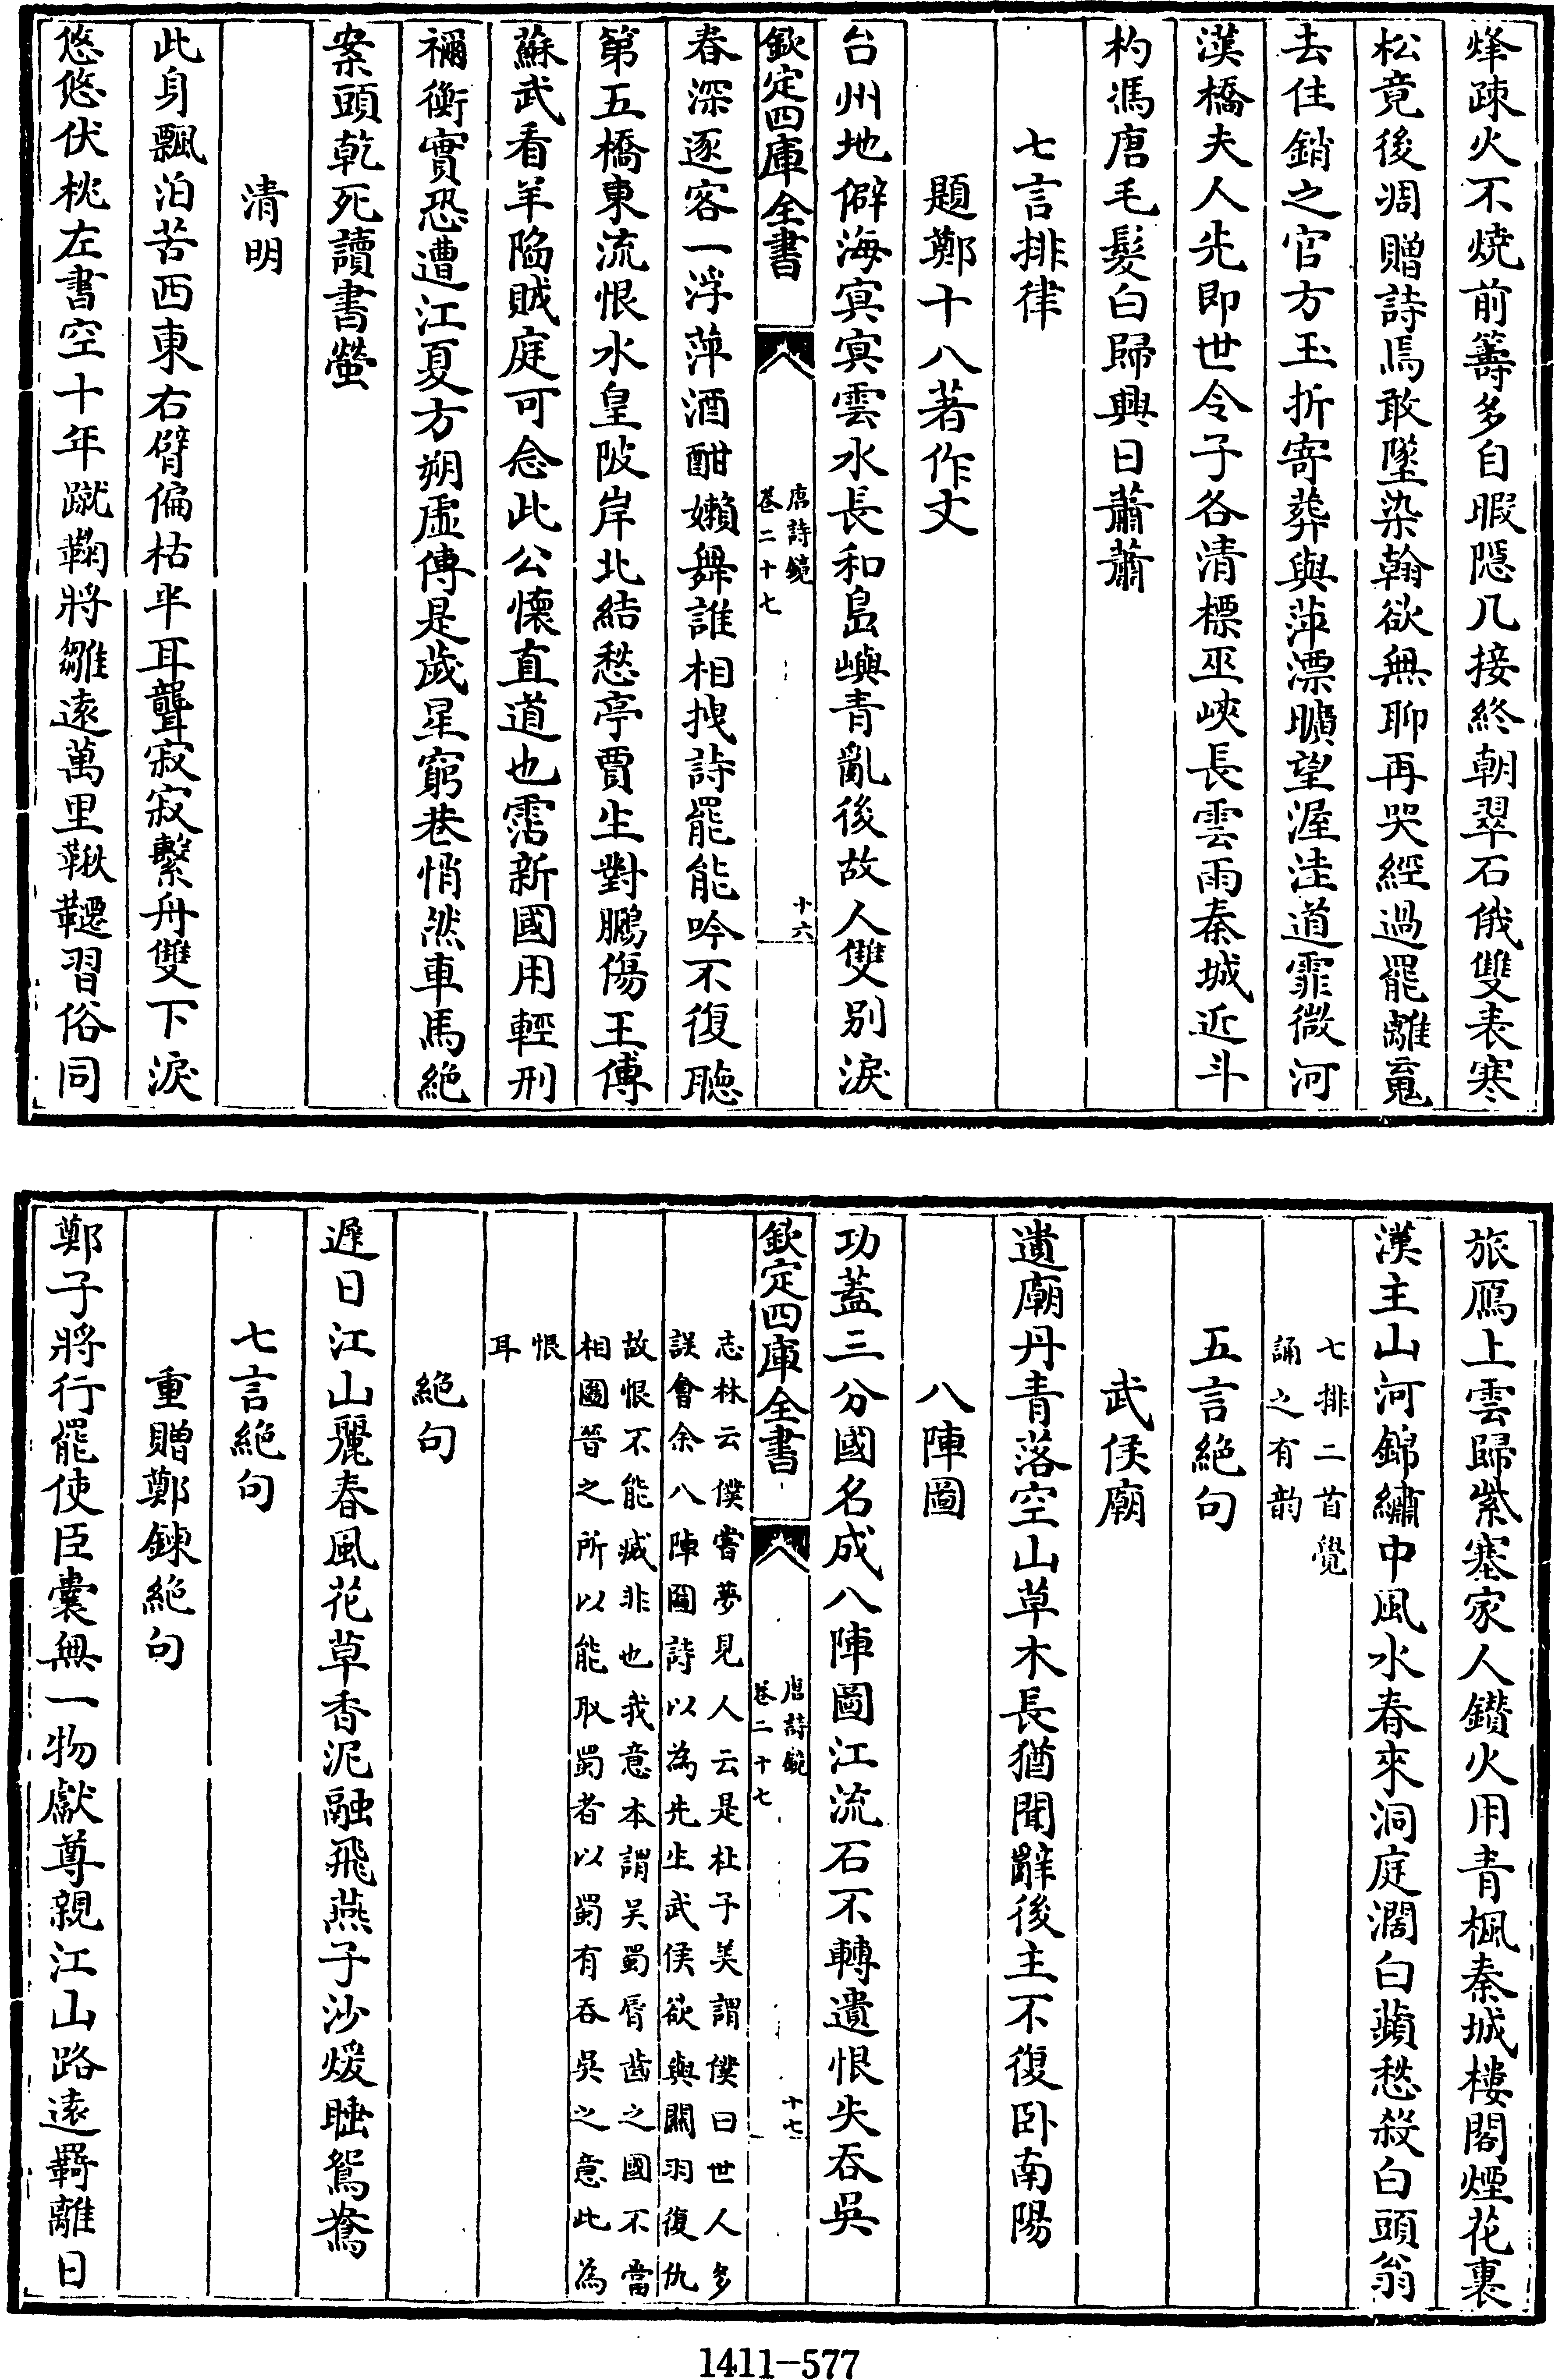 烽疎火不燒前籌多自暇隱几接終朝翠石俄雙表寒
松竟後凋贈詩焉敢墜染翰欲無聊再哭經過罷離䰟
去住銷之官方玉折寄葬與萍漂曠望渥洼道霏微河
漢橋夫人先即世令子各清標巫峽長雲雨秦城近斗
杓馮唐毛髮白歸興日蕭蕭
七言排律
題鄭十八著作丈
台州地僻海㝠㝠雲水長和島嶼青亂後故人雙别淚
欽定四庫全書
唐詩鏡
卷二十七
十六
春深逐客一浮萍酒酣嬾舞誰相拽詩罷能吟不復聴
第五橋東流恨水皇陂岸北結愁亭賈生對鵩傷王傅
蘇武看羊陷賊庭可念此公懷直道也霑新國用輕刑
禰衡實恐遭江夏方朔虛傳是嵗星窮巷悄然車馬絶
案頭乾死讀書螢
清明
此身飄泊苦西東右臂偏枯半耳聾寂寂繫舟雙下淚
悠悠伏枕左書空十年蹴踘將雛遠萬里鞦韆習俗同
旅鴈上雲歸紫塞家人鑽火用青楓秦城樓閣煙花裏
漢主山河錦繡中風水春來洞庭濶白蘋愁殺白頭翁
七排二首覺
誦之有韵
五言絶句
武侯廟
遺廟丹青落空山草木長猶聞辭後主不復卧南陽
八陣圖
功蓋三分國名成八陣圖江流石不轉遺恨失吞吳
欽定四庫全書
唐詩鏡
卷二十七
十七
志林云僕嘗夢見人云是杜子美謂僕曰世人多
誤會余八陣圖詩以為先生武侯欲與關羽復仇
故恨不能滅非也我意本謂吳蜀脣齒之國不當
相圖晉之所以能取蜀者以蜀有吞吳之意此為
恨
耳
絶句
遲日江山麗春風花草香泥融飛燕子沙煖睡鴛鴦
七言絶句
重贈鄭鍊絶句
鄭子將行罷使臣囊無一物獻尊親江山路遠羇離日
1411—577